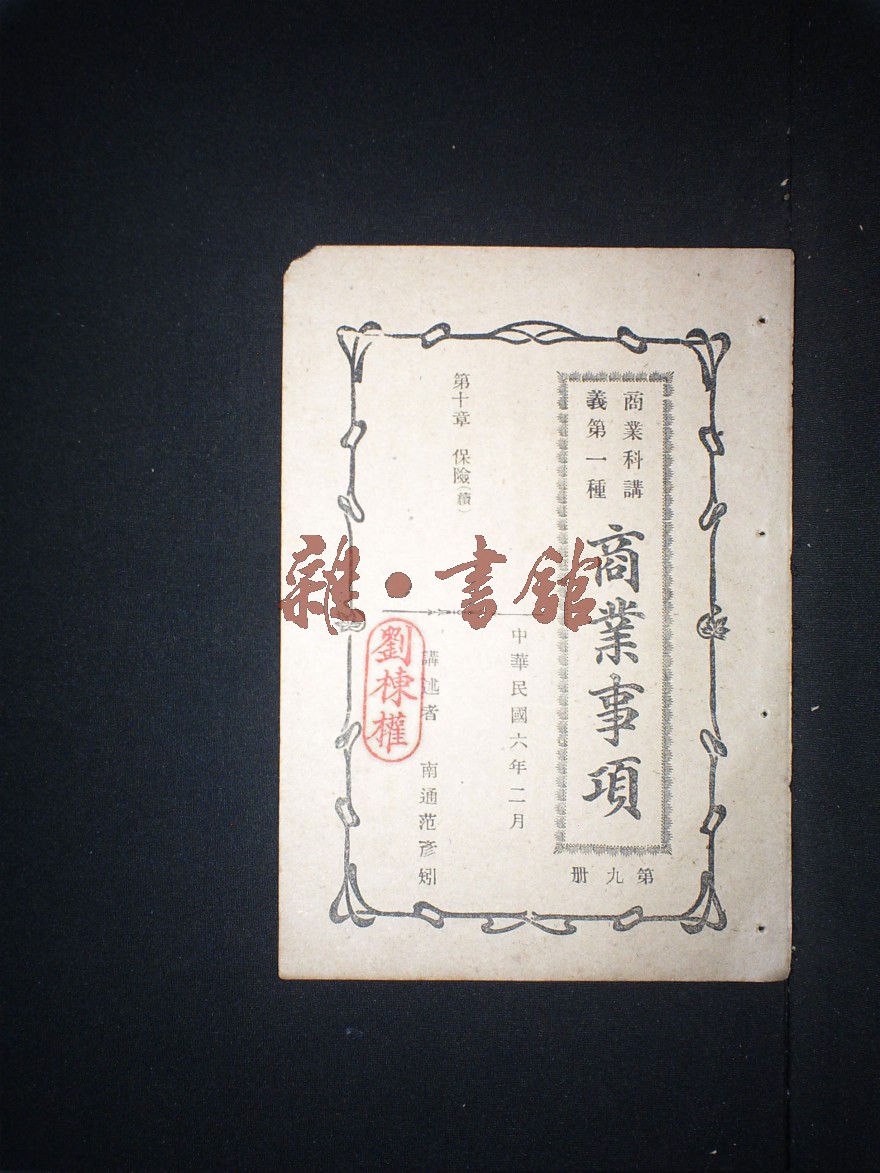 商業科講
義第一種
商業事項
第九册
中華民國六年二月
第十章 保險(續)
講述者 南通范彥矧
劉棟權
雜・書館